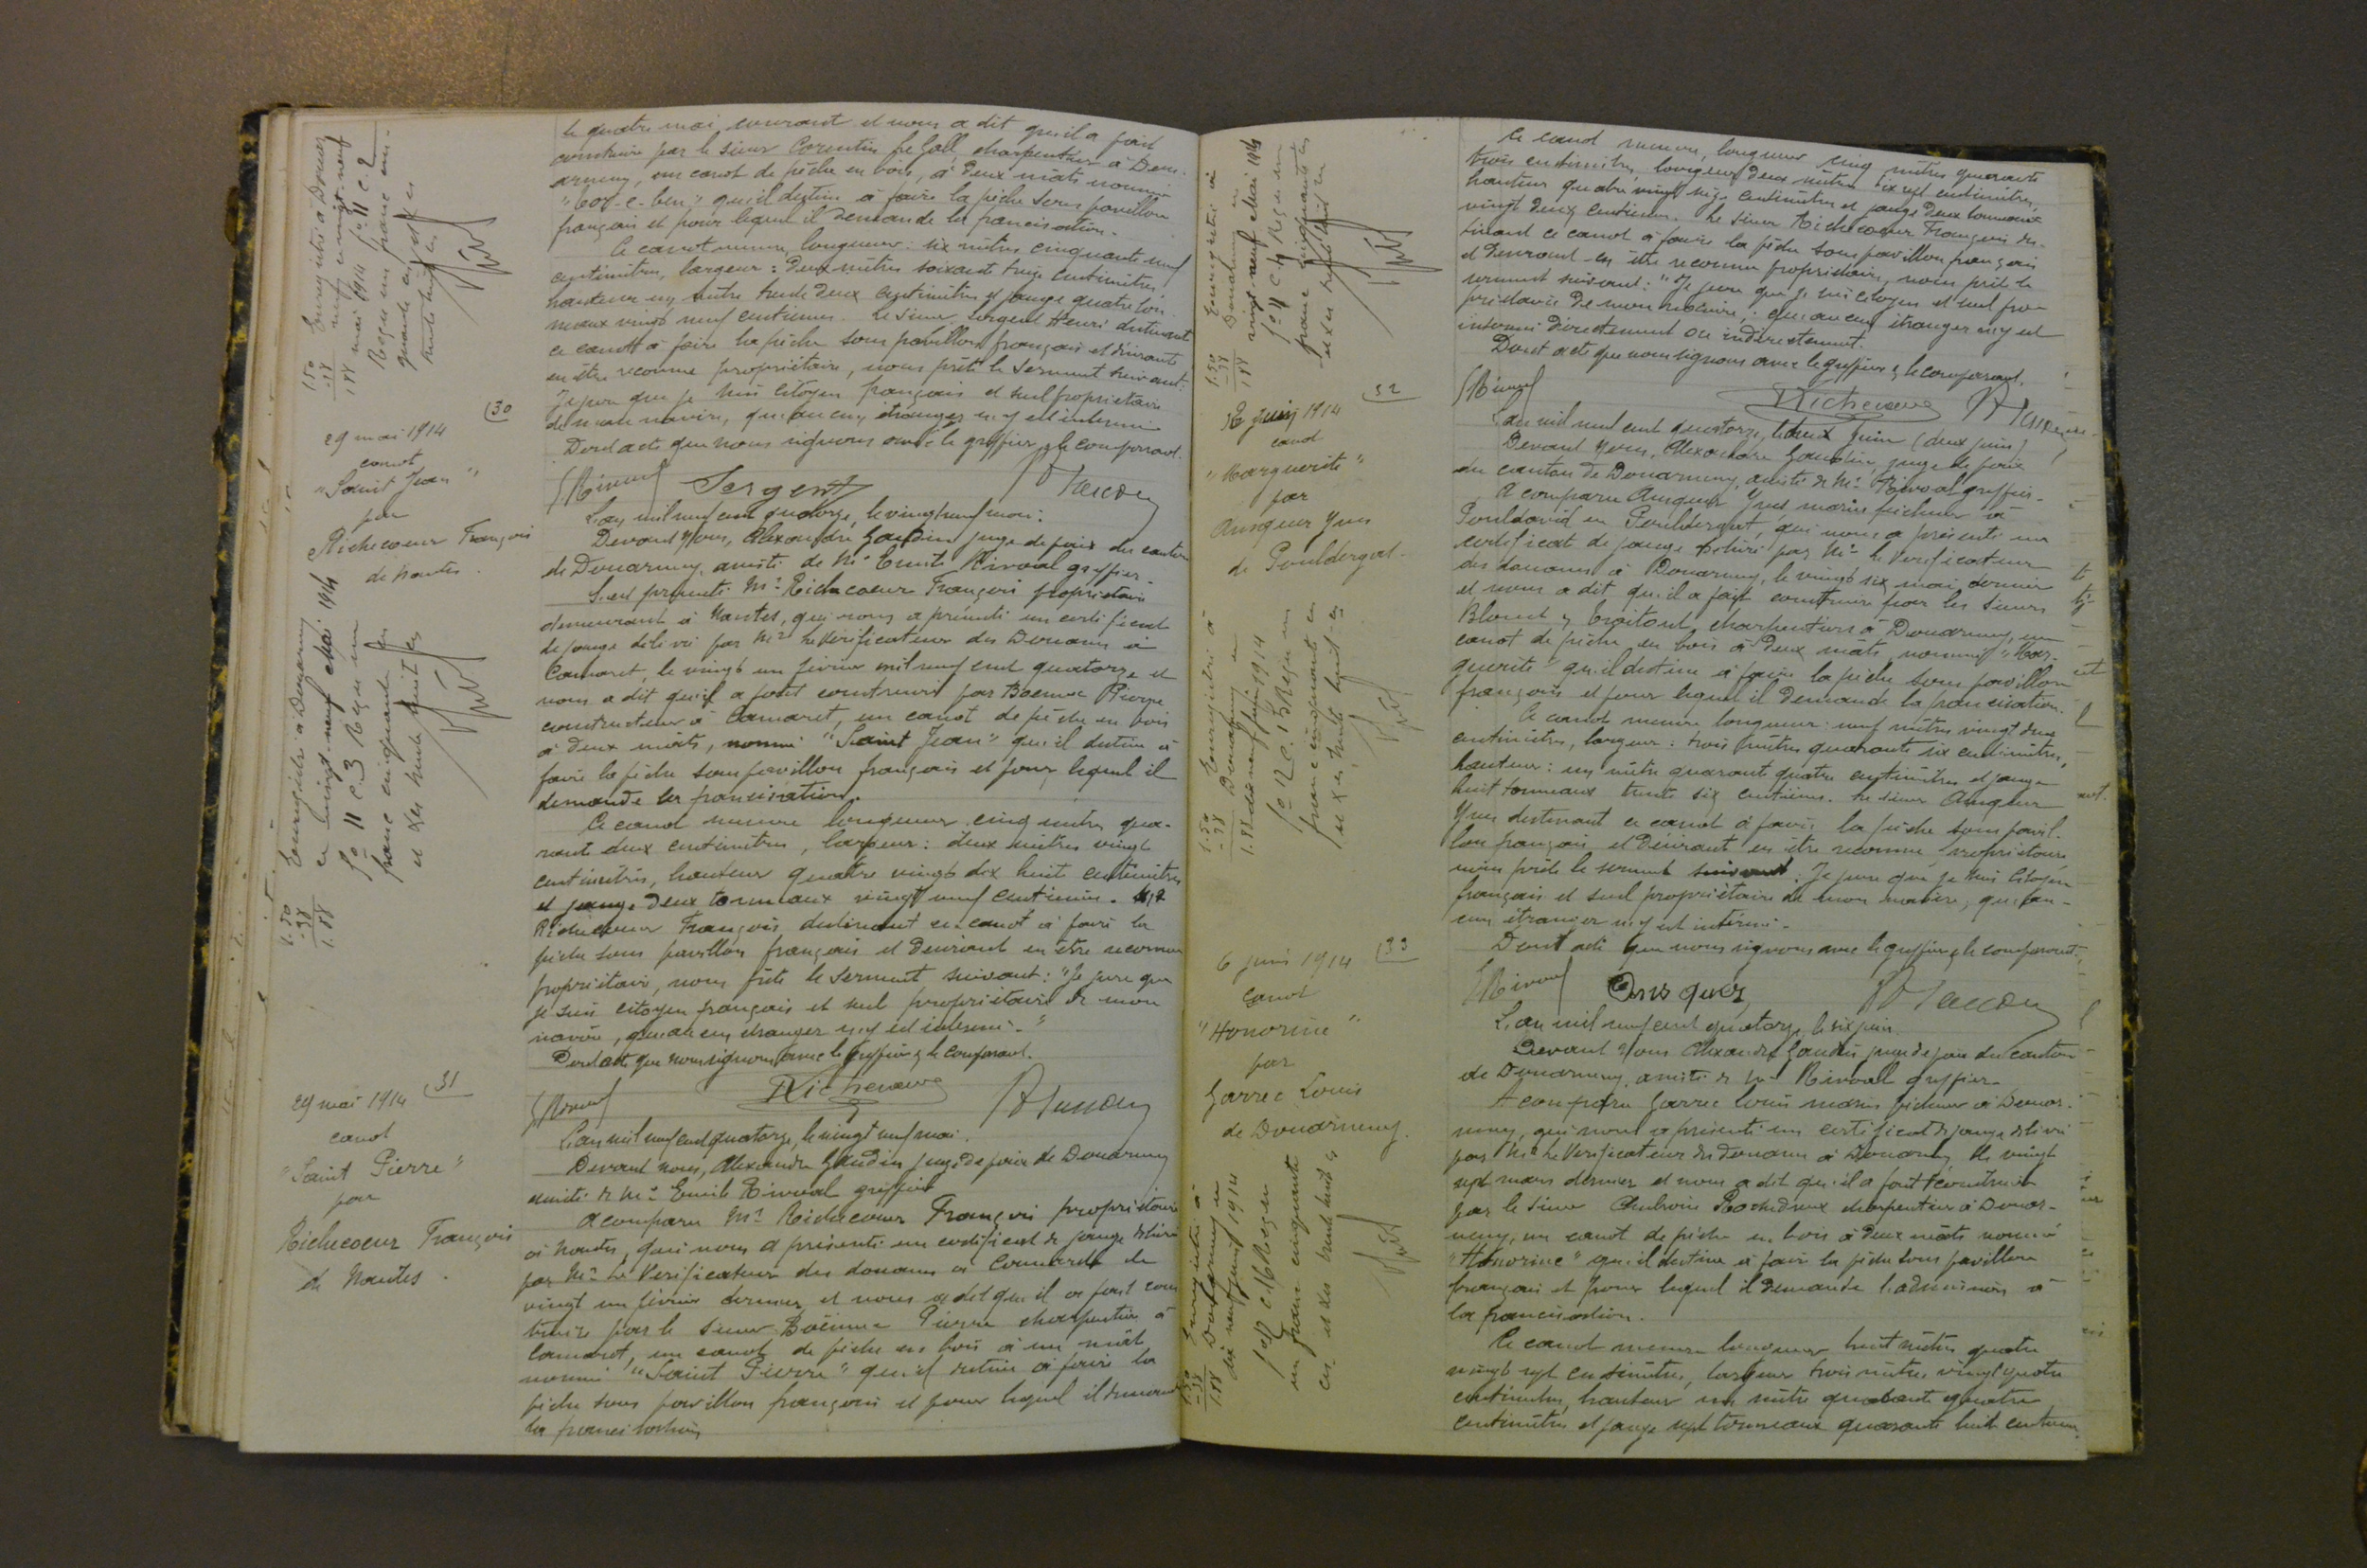 le quatre mai courant et nous a dit qu'il a fait
construire par le sieur Corentin Le Gall, charpentier à Dou-
arnenez, un canot de pêche en bois, à deux mâts nommé
qu'il destine à faire la pêche sous pavillon
français et pour lequel il demande la francisation.
Ce canot mesure, longueur: six mètres cinquante neuf
centimètres, largeur: deux mètres soixante treize centimètres,
hauteur un mètre trente deux centimètres et jauge quatre ton-
neaux vingt neuf centièmes. Le sieur Sergent Henri destinant
ce canot à faire la pêche sous pavillon français et désirant
en être reconnu propriétaire, nous prête le serment suivant:
Je jure que je suis citoyen français et seul propriétaire
de mon navire, qu'aucun étranger n'y est intéressé
Dont acte que nous signons avec le greffier & le comparant.
ERivoal Sergent
Enregistré à Douarnenez
vingt-neuf
mai 1914 f° 11 c. 2
Reçu un franc cin-
quante ces
trente huit ces
1.50
-38
1.88
(30
29 mai 1914
canot
"Saint Jean"
par
Richecoeur François
de Nantes.
L'an mil neuf cent quatorze, le vingt neuf mai.
Devant Nous, Alexandre Gaudin juge de paix du canton
de Douarnenez, assisté de Mr Emile Rivoal greffier.
S'est présenté Mr Richecoeur François propriétaire
demeurant à Nantes, qui nous a présenté un certificat
de jauge délivré par Mr le Vérificateur des Douanes à
Camaret, le vingt un février mil neuf cent quatorze et
nous a dit qu'il a fait construire par Pierre
constructeur à Camaret, un canot de pêche en bois
à deux mâts, nommé "Saint Jean" qu'il destine à
faire la pêche sous pavillon français et pour lequel il
demande la francisation.
Ce canot mesure longueur cinq mètres qua-
rante deux centimètres, largeur: deux mètres vingt
centimètres, hauteur quatre vingt dix huit centimètres
et jauge deux tonneaux vingt neuf centièmes. Mr
Richecoeur François destinant ce canot à faire la
pêche sous pavillon français et désirant en être reconnu
propriétaire, nous prête le serment suivant: "Je jure que
je suis citoyen français et seul propriétaire de mon
navire, qu'aucun étranger n'y est intéressé."
Dont acte que nous signons avec le greffier & le comparant.
ERivoal Richecoeur
Enregistré à Douarnenez
le vingt-neuf mai 1914
f° 11 c. 3 Reçu un
franc cinquante ces
et Xes trente huit ces
1.50
-38
1.88
(31
29 mai 1914
canot
"Saint Pierre"
par
Richecoeur François
de Nantes.
L'an mil neuf cent quatorze, le vingt neuf mai.
Devant nous, Alexandre Gaudin juge de paix de Douarnenez
assisté de Mr Emile Rivoal greffier
A comparu Mr Richecoeur François propriétaire
à Nantes, qui nous a présenté un certificat de jauge délivré
par Mr le Vérificateur des douanes à Camaret le
vingt un février dernier et nous a dit qu'il a fait cons
truire par le sieur Pierre charpentier à
Camaret, un canot de pêche en bois à un mât
nommé "Saint Pierre" qu'il destine à faire la
pêche sous pavillon français et pour lequel il demande
la francisation
Ce canot mesure, longueur cinq mètres quarante
trois centimètres, largeur deux mètres dix sept centimètres,
hauteur quatre vingt seize centimètres et jauge deux tonneaux
vingt deux centièmes. Le sieur Richecoeur François des-
tinant ce canot à faire la pêche sous pavillon français
et désirant en être reconnu propriétaire, nous prête le
serment suivant: "Je jure que je suis citoyen et seul pro-
priétaire de mon navire, qu'aucun étranger n'y est
intéressé directement ou indirectement.
Dont acte que nous signons avec le greffier & le comparant.
ERivoal Richecoeur
Enregistré à
Douarnenez le
vingt-neuf mai 1914
f° 11 c. 4 Reçu un
franc cinquante ces
et Xes trente huit ces
1.50
-38
1.88
(32
2 juin 1914
canot
"Marguerite"
par
Ansquer Yves
de Pouldergat.
L'an mil neuf cent quatorze, le deux juin (deux juin)
Devant Nous, Alexandre Gaudin, juge de paix
du canton de Douarnenez, assisté de Mr Rivoal greffier.
A comparu Ansquer Yves marin pêcheur à
Pouldavid en Pouldergat, qui nous a présenté un
certificat de jauge délivré par Mr le Vérificateur
des douanes à Douarnenez, le vingt six mai dernier
et nous a dit qu'il a fait construire par les sieurs
charpentiers à Douarnenez, un
canot de pêche en bois à deux mâts, nommé "Mar-
guerite" qu'il destine à faire la pêche sous pavillon
français et pour lequel il demande la francisation.
Ce canot mesure longueur: neuf mètres vingt deux
centimètres, largeur: trois mètres quarante six centimètres,
hauteur: un mètre quarante quatre centimètres et jauge
huit tonneaux trente six centièmes. Le sieur Ansquer
Yves destinant ce canot à faire la pêche sous pavil-
lon français et désirant en être reconnu propriétaire
nous prête le serment suivant: Je jure que je suis citoyen
français et seul propriétaire de mon navire, qu'au-
cun étranger n'y est intéressé.
Dont acte que nous signons avec le greffier & le comparant.
ERivoal Ansquer
Enregistré à
Douarnenez le
dix neuf juin 1914
f° 12 c. 15 Reçu un
franc cinquante ces
et Xes, trente huit ces
1.50
-38
1.88
(33
6 juin 1914
canot
"Honorine"
par
Garrec Louis
de Douarnenez.
L'an mil neuf cent quatorze, le six juin.
Devant Nous Alexandre Gaudin juge de paix du canton
de Douarnenez, assisté de Mr Rivoal greffier.
A comparu Garrec Louis marin pêcheur à Douar-
nenez, qui nous a présenté un certificat de jauge délivré
par Mr le Vérificateur des douanes à Douarnenez le vingt
sept mars dernier et nous a dit qu'il a fait construire
par le sieur charpentier à Douar-
nenez, un canot de pêche en bois à deux mâts nommé
"Honorine" qu'il destine à faire la pêche sous pavillon
français et pour lequel il demande l'admission à
la francisation.
Ce canot mesure longueur huit mètres quatre
vingt sept centimètres, largeur trois mètres vingt quatre
centimètres, hauteur un mètre quarante quatre
centimètres et jauge sept tonneaux quarante huit centièmes
Enregistré à
Douarnenez le
dix neuf juin 1914
f° 12 c. 16 Reçu
un franc cinquante
ces et des trente huit ces
1.50
-38
1.88